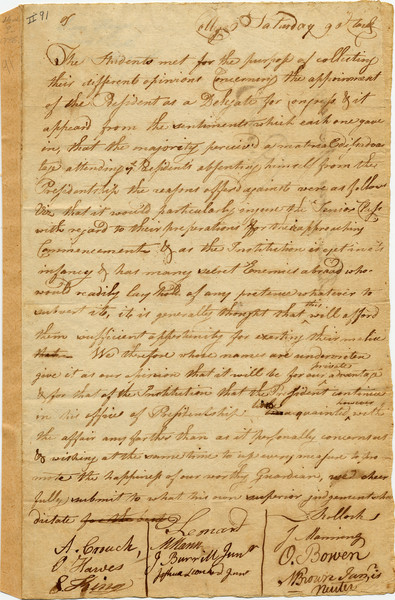 II 91
May 5 Saturday 9 o'clock
The Students met for the purpose of collecting
their different opinions Concerning the appointment
of the President as a Delegate for Congress & it
appeard from the sentiments which each one gave
in, that the majority perceived a material disadvan
tage attending ye Presidents absenting himself from the
Presidentship the reasons offerd against it were as follows
Viz that it would particularly injure the Senior Class
with regard to their preparations for the approaching
Commencement & as the Institution is yet in its
infancy & has many secret Enemies abroad who
would readily lay hold of any pretence whatever to
subvert it, it is generally thought that this will afford
them sufficient opportunity for exerting their malice
We therefore whose names are underwritten
give it as our opinion that it will be for our private advantage
& for that of the Institution that the President continue
in his office of Presidentship. unacquainted however with
the affair any farther than as it personally concerns us
& wishing at the same time to use every measure to pro
mote the happiness of our worthy Guardian, we'd cheer
fully submit to what his own superior judgement shall
dictate
Leonard
Hollock
A. Cornck
M Mann
J Manning
P Hawes
J Burrill Junr
O. Bowen
E King
Joshua Leonard Junr
N Brown James
Neuter